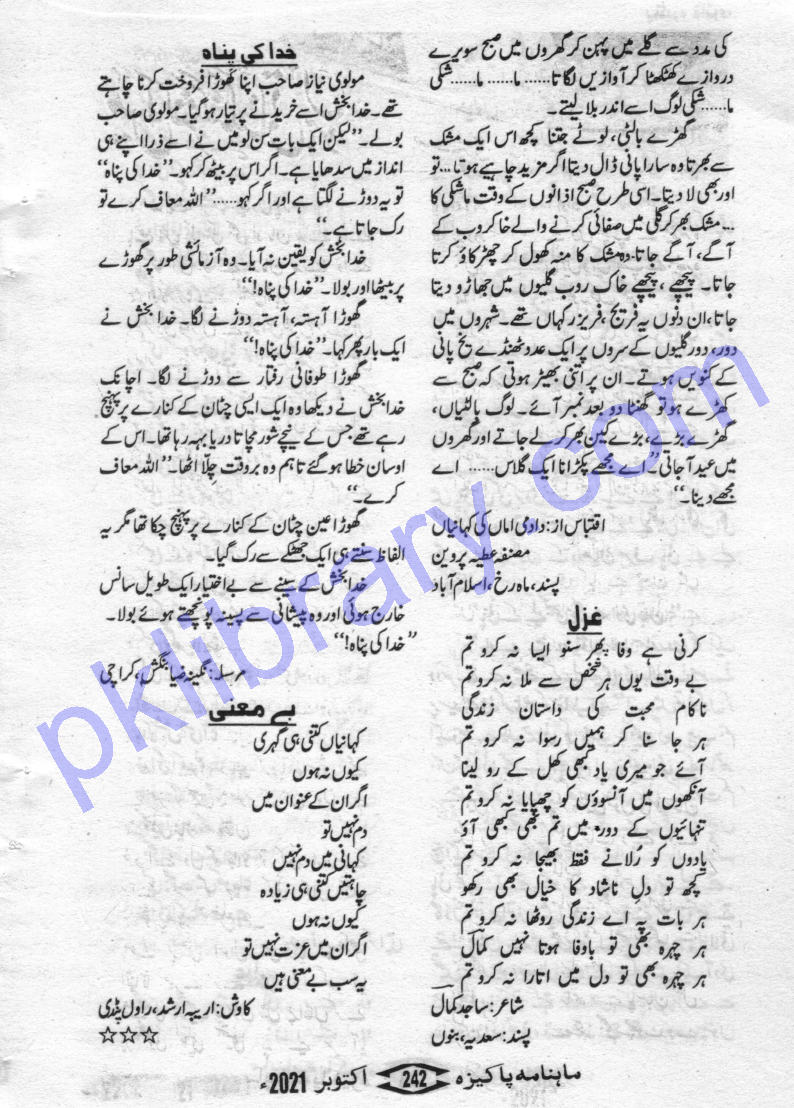 کی مدد سے گلے میں پہن کر گھروں میں صبح سویرے
دروازے کھٹکھٹا کر آوازیں لگاتا...... ما...... ما...... شکی
ما...... شکی لوگ اسے اندر بلا لیتے۔
گھڑے بالٹی، لوٹے جتنا کچھ اس ایک مشک
سے بھرتا وہ سارا پانی ڈال دیتا اگر مزید چاہیے ہوتا... تو
اور بھی لا دیتا۔ اسی طرح صبح اذانوں کے وقت ماشکی کا
... مشک بھر کر گلی میں صفائی کرنے والے خاکروب کے
آگے، آگے جاتا۔ وہ مشک کا منہ کھول کر چھڑکاؤ کرتا
جاتا۔ پیچھے، پیچھے خاک روب گلیوں میں جھاڑو دیتا
جاتا، ان دنوں یہ فریج، فریزر کہاں تھے۔ شہروں میں
دور، دور گلیوں کے سروں پر ایک عدد ٹھنڈے یخ پانی
کے کنویں ہوتے۔ ان پر اتنی بھیڑ ہوتی کہ صبح سے
کھڑے ہو تو گھنٹا دو بعد نمبر آئے۔ لوگ بالٹیاں،
گھڑے بڑے، بڑے کین بھر کر لے جاتے اور گھروں
میں عید آ جاتی۔ اے مجھے پکڑانا ایک گلاس...... اے
مجھے دینا۔‘‘
اقتباس از: دادمی اماں کی کہانیاں
مصنفہ عطیہ پروین
پسند، ماہ رخ، اسلام آباد
غزل
کرنی ہے وفا پھر سنو ایسا نہ کرو تم
بے وقت یوں ہر شخص سے ملا نہ کرو تم
ناکام محبت کی داستان زندگی
ہر جا سنا کر ہمیں رسوا نہ کرو تم
آئے جو میری یاد بھی کھل کے رو لینا
آنکھوں میں آنسوؤں کو چھپایا نہ کرو تم
تنہائیوں کے دور میں تم بھی کبھی آؤ
یادوں کو رُلانے فقط بھیجا نہ کرو تم
کچھ تو دلِ ناشاد کا خیال بھی رکھو
ہر بات پہ اے زندگی روٹھا نہ کرو تم
ہر چہرہ بھی تو باوفا ہوتا نہیں کمال
ہر چہرہ بھی تو دل میں اتارا نہ کرو تم
شاعر: ساجد کمال
پسند: سعدیہ، بنوں
خدا کی پناہ
مولوی نیاز صاحب اپنا گھوڑا فروخت کرنا چاہتے
تھے۔ خدا بخش اسے خریدنے پر تیار ہو گیا۔ مولوی صاحب
بولے۔ ’’لیکن ایک بات سن لو میں نے اسے ذرا اپنے ہی
انداز میں سدھایا ہے۔ اگر اس پر بیٹھ کر کہو۔ ’’خدا کی پناہ‘‘
تو یہ دوڑنے لگتا ہے اور اگر کہو...... ’’اللہ معاف کرے تو
رک جاتا ہے۔‘‘
خدا بخش کو یقین نہ آیا۔ وہ آزمائشی طور پر گھوڑے
پر بیٹھا اور بولا۔ ’’خدا کی پناہ!‘‘
گھوڑا آہستہ، آہستہ دوڑنے لگا۔ خدا بخش نے
ایک بار پھر کہا۔ ’’خدا کی پناہ!‘‘
گھوڑا طوفانی رفتار سے دوڑنے لگا۔ اچانک
خدا بخش نے دیکھا وہ ایک ایسی چٹان کے کنارے پر پہنچ
رہے تھے جس کے نیچے شور مچاتا دریا بہہ رہا تھا۔ اس کے
اوسان خطا ہو گئے تاہم وہ بروقت چلّا اٹھا۔ ’’اللہ معاف
کرے۔‘‘
گھوڑا عین چٹان کے کنارے پر پہنچ چکا تھا مگر یہ
الفاظ سنتے ہی ایک جھٹکے سے رک گیا۔
خدا بخش کے سینے سے بے اختیار ایک طویل سانس
خارج ہوئی اور وہ پیشانی سے پسینہ پونچھتے ہوئے بولا۔
’’خدا کی پناہ!‘‘
مرسلہ: نگینہ ضیا بنگش، کراچی
بے معنی
کہانیاں کتنی ہی گہری
کیوں نہ ہوں
اگر ان کے عنوان میں
دم نہیں تو
کہانی میں دم نہیں
چاہتیں کتنی ہی زیادہ
کیوں نہ ہوں
اگر ان میں عزت نہیں تو
یہ سب بے معنی ہیں
کاوش: اریبہ ارشد، راول پنڈی
☆☆☆
ماہنامہ پاکیزہ 242 اکتوبر 2021ء
pklibrary.com